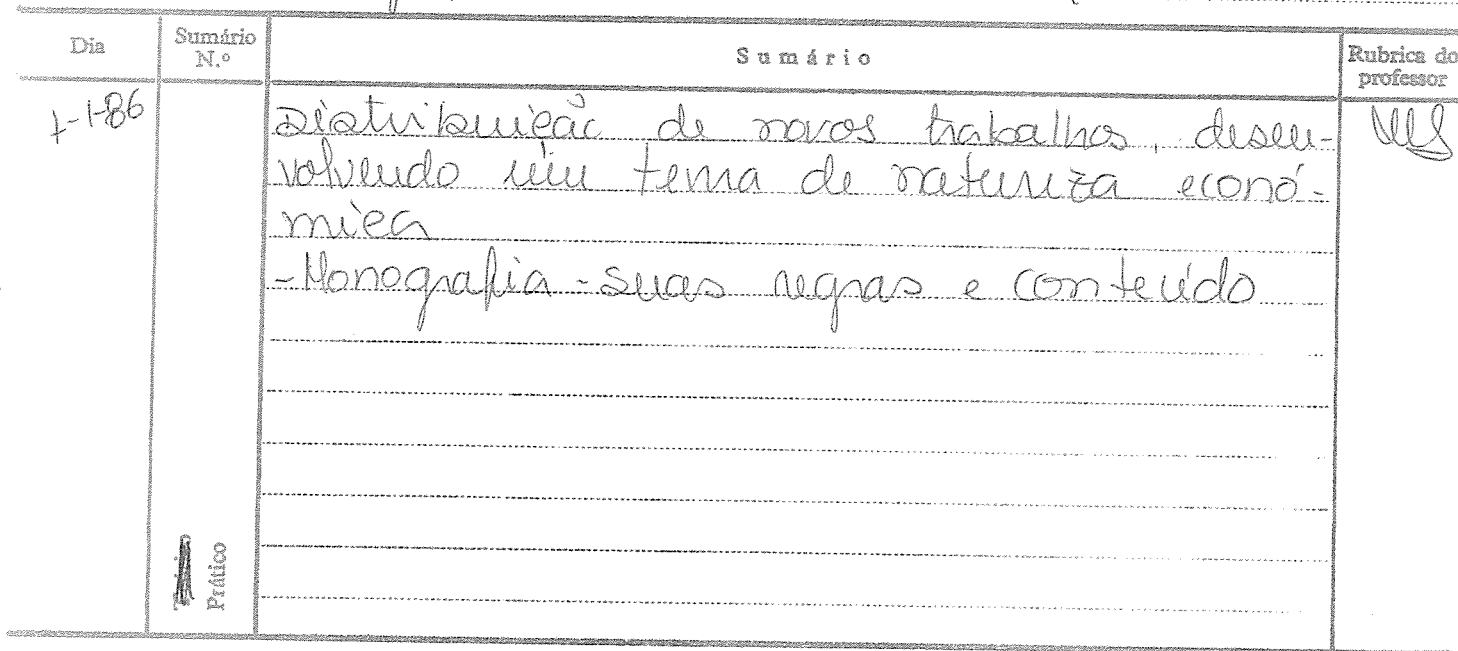 Dia
Sumário N.º
Sumário
Rubrica do professor
7-1-86
Distribuição de novos trabalhos, desen-
volvendo um tema de natureza econó-
mica
- Monografia - suas regras e conteúdo
Prático